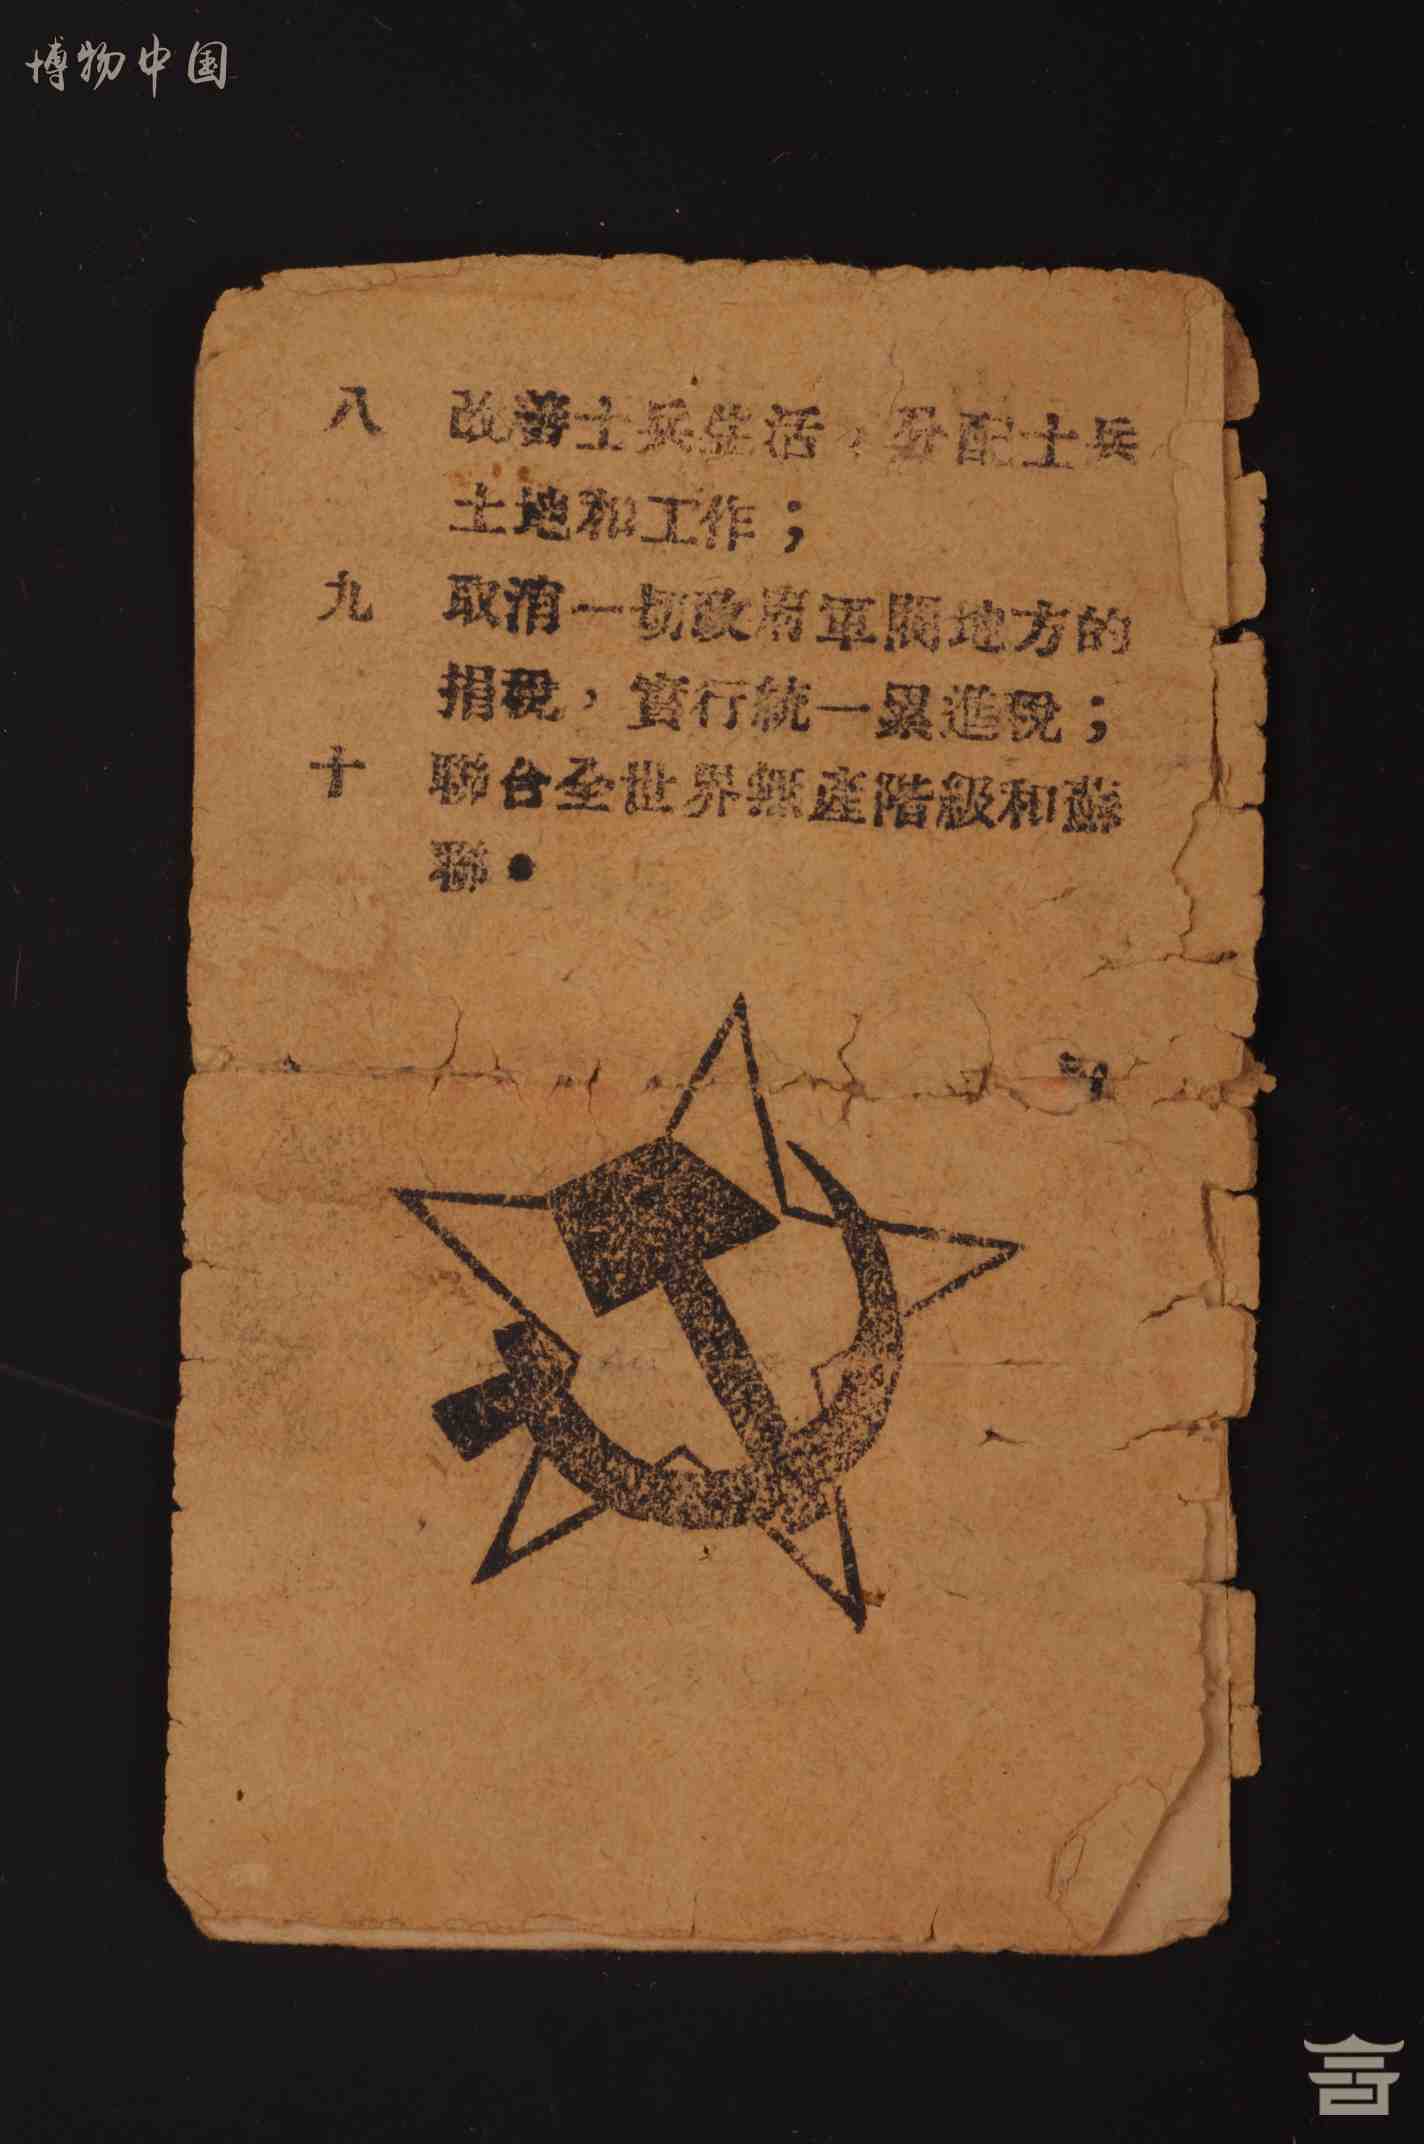 博物中国
八 改善士兵生活，發配士兵
土地和工作；
九 取消一切政府軍閥地方的
捐稅，實行統一累進稅；
十 聯合全世界無產階級和蘇
聯•